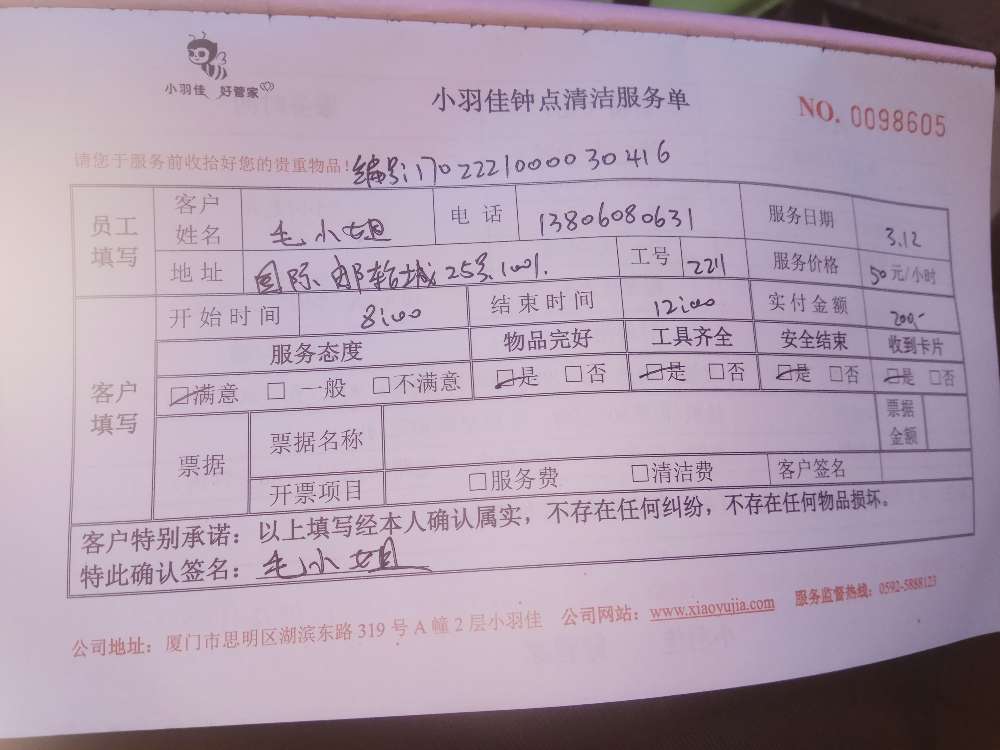 小羽佳 好管家
小羽佳钟点清洁服务单
NO. 0098605
请您于服务前收拾好您的贵重物品!
编号:1702221000030416
员工填写 客户姓名 毛小姐 电话 13806080631 服务日期 3.12
地址 国际邮轮城25号1001. 工号 221 服务价格 50元/小时
客户填写 开始时间 8:00 结束时间 12:00 实付金额 200.-
服务态度 物品完好 工具齐全 安全结束 收到卡片
☑满意 □一般 □不满意 ☑是 □否 ☑是 □否 ☑是 □否 ☑是 □否
票据 票据名称 票据金额
开票项目 □服务费 □清洁费 客户签名
客户特别承诺:以上填写经本人确认属实,不存在任何纠纷,不存在任何物品损坏。
特此确认签名:毛小姐
公司地址:厦门市思明区湖滨东路319号A幢2层小羽佳 公司网站:www.xiaoyujia.com 服务监督热线:0592-5888123